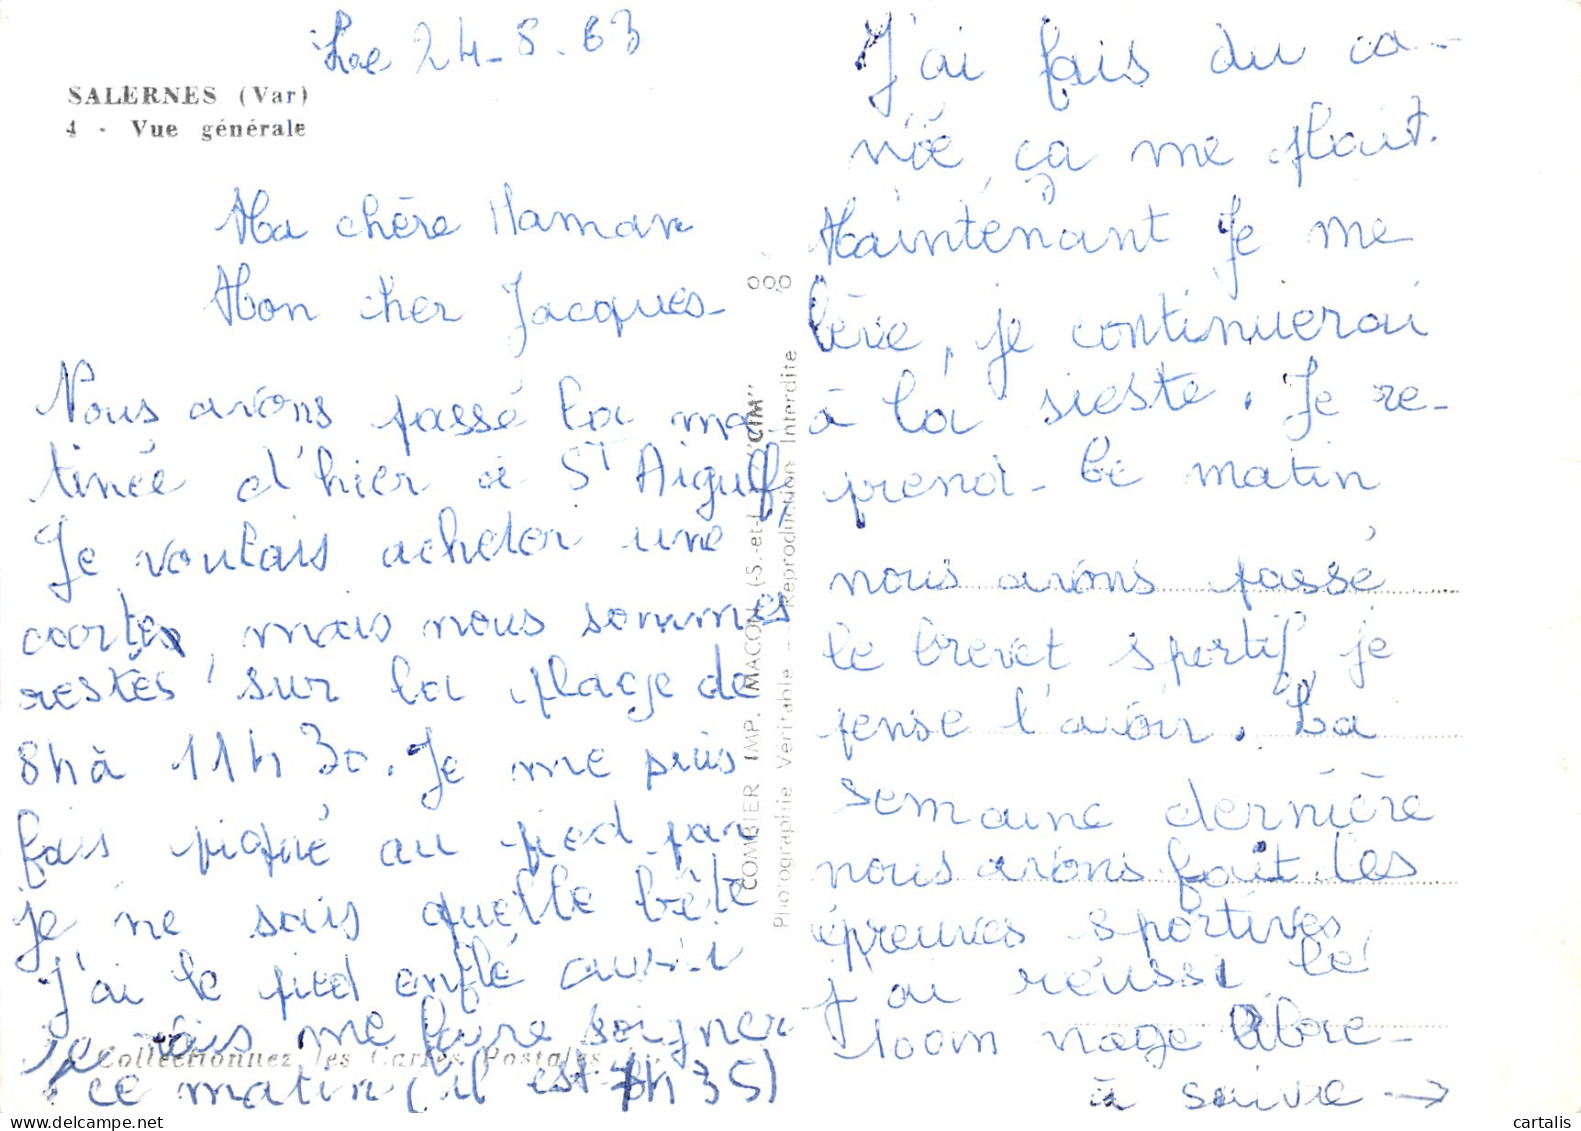 Le 24-8-63
SALERNES (Var)
4 - Vue générale
Ma chère Maman
Mon cher Jacques-
Nous avons passé la ma-
tinée d'hier à St Aigulf,
Je voulais acheter une
carte, mais nous sommes
restés sur la plage de
8h à 11h30. Je me suis
fais piqué au pied par
je ne sais quelle bête
J'ai le pied enflé aussi
je vais me faire soigner
ce matin (il est 7h35)
Collectionnez les Cartes Postales
COMBIER IMP. MACON (S.-et-L.) "CIM"
Photographie Véritable - Reproduction Interdite
J'ai fais du ca-
noë, ça me plait.
Maintenant Je me
lève, je continuerai
à la sieste. Je re-
prend- Ce matin
nous avons passé
le brevet sportif, je
pense l'avoir. La
semaine dernière
nous avons fait les
épreuves sportives,
j'ai réussi le
100m nage libre-
à suivre →
cartalis